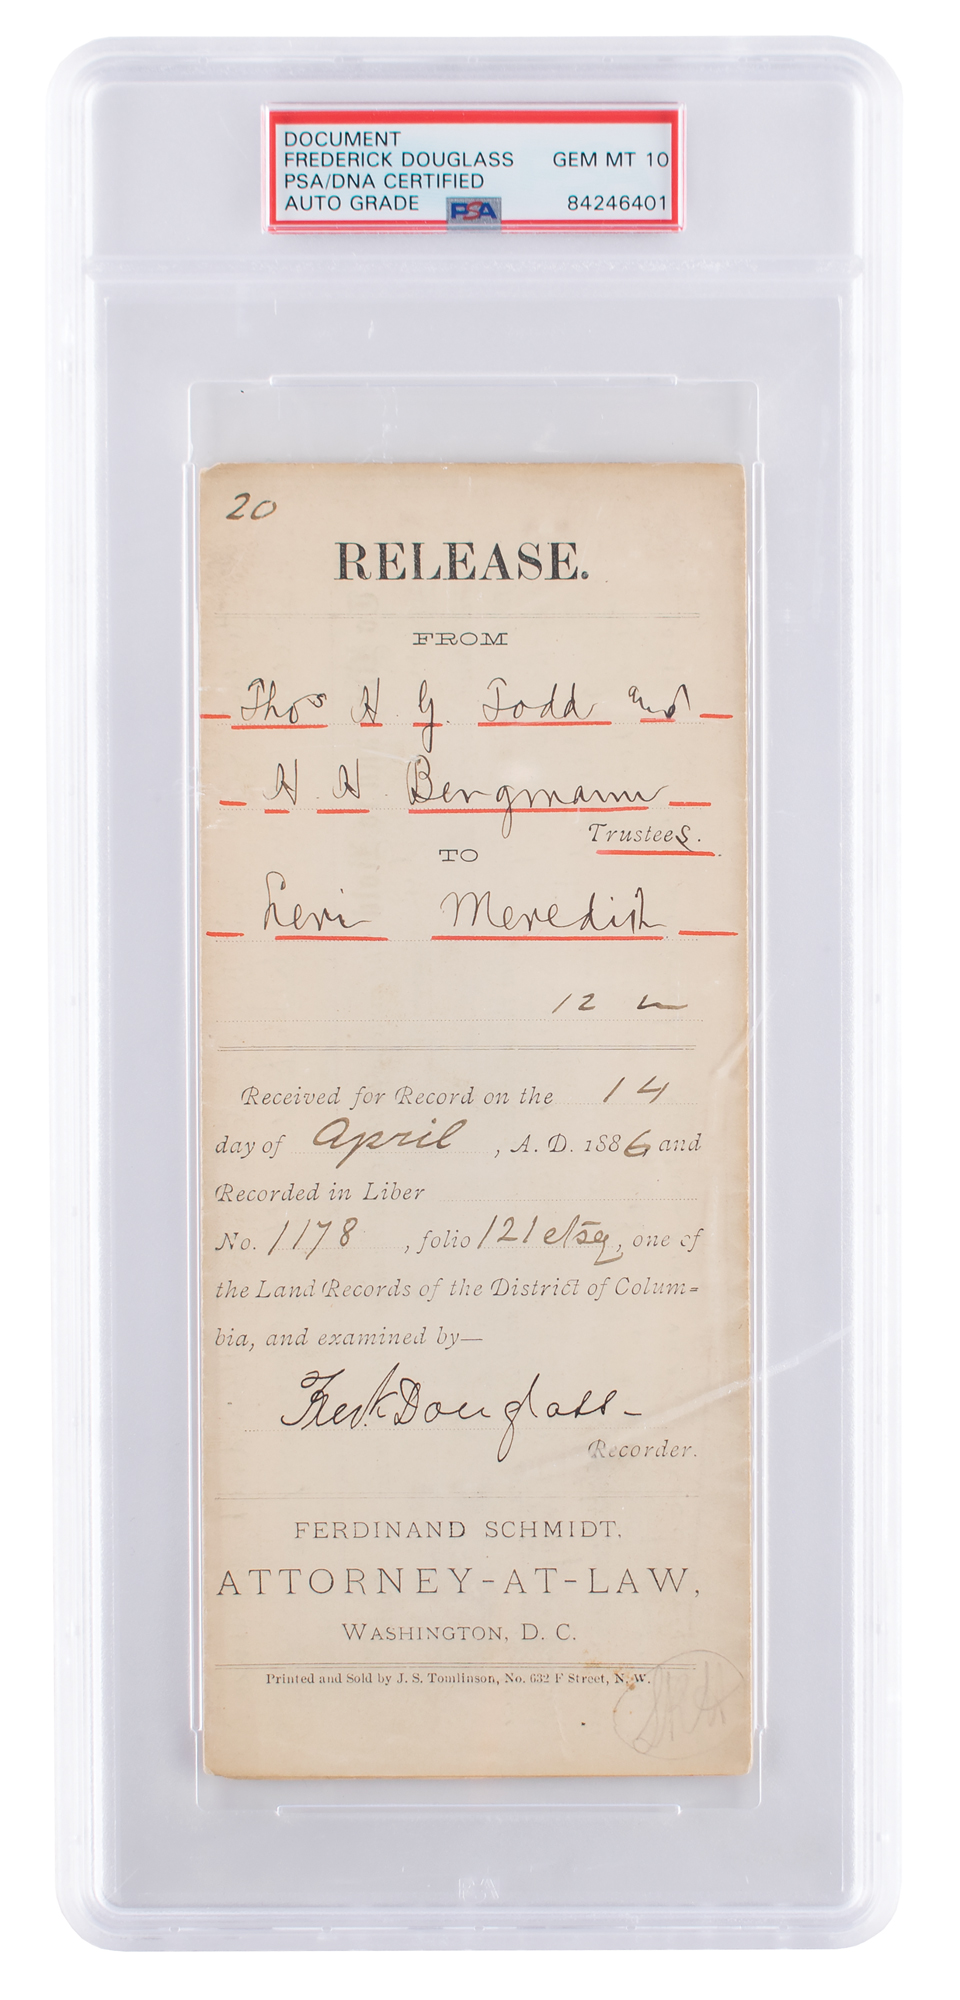 DOCUMENT
FREDERICK DOUGLASS GEM MT 10
PSA/DNA CERTIFIED
AUTO GRADE PSA 84246401
20
RELEASE.
FROM
Thos H G. Todd and
H H Bergmann
Trustees.
TO
Levi Meredith
12 m
Received for Record on the 14
day of April, A. D. 1886 and
Recorded in Liber
No. 1178, folio 121 etsq, one of
the Land Records of the District of Colum=
bia, and examined by—
Fredk Douglass-
Recorder.
FERDINAND SCHMIDT,
ATTORNEY-AT-LAW,
WASHINGTON, D. C.
Printed and Sold by J. S. Tomlinson, No. 632 F Street, N. W.